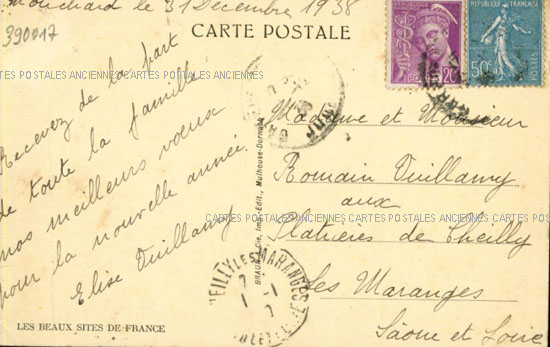 Mouchard le 31 Decembre 1938
390017
CARTE POSTALE
Recevez de la part
de toute la famille
nos meilleurs voeux
pour la nouvelle année.
Elise Vuillamy
LES BEAUX SITES DE FRANCE
BRAUN & Cie, Imp.-Édit., Mulhouse-Dornach
RÉPUBLIQUE FRANÇAISE
20c
POSTES
50c
Madame et Monsieur
Romain Vuillamy
aux
Platrières de Cheilly
Les Maranges
Saône et Loire
CHEILLY LES MARANGES
CARTES POSTALES ANCIENNES CARTES POSTALES ANCIENNES CARTES POSTALES ANCIENNES CARTES POSTALES
CARTES POSTALES ANCIENNES CARTES POSTALES ANCIENNES